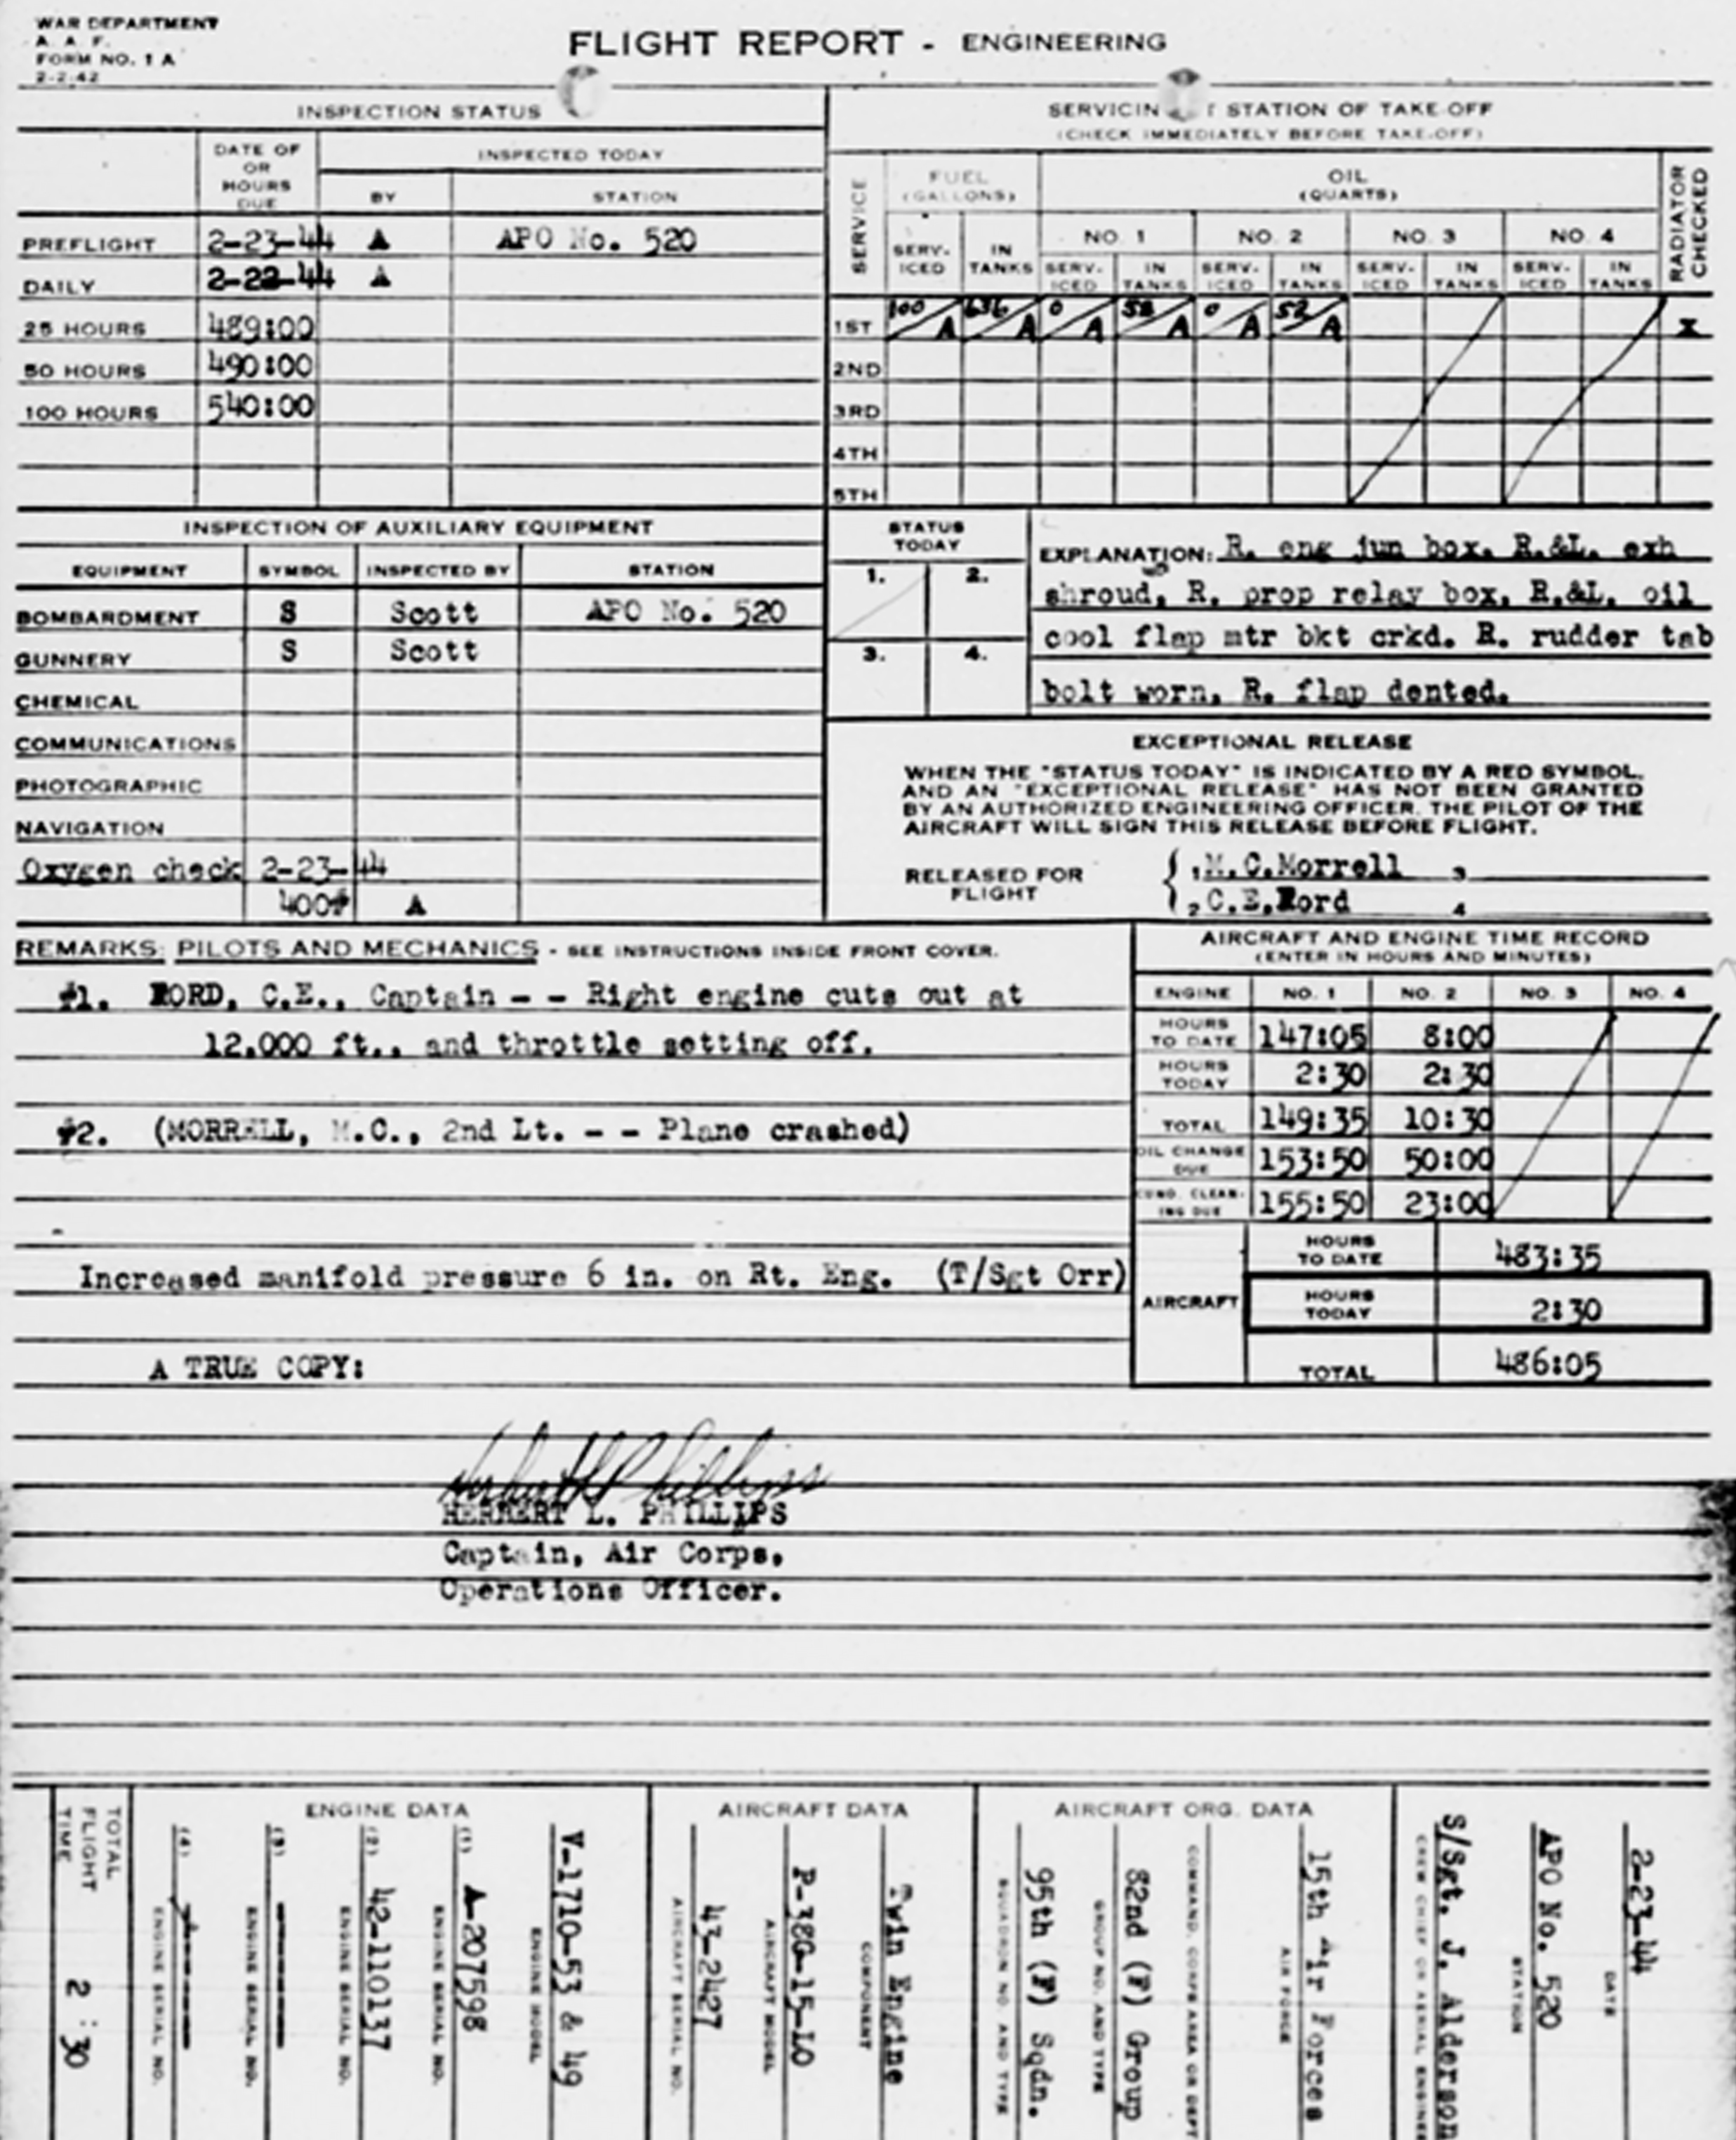 WAR DEPARTMENT
A. A. F.
FORM NO. 1 A
2-2-42
FLIGHT REPORT - ENGINEERING
INSPECTION STATUS
DATE OF
OR
HOURS
DUE
INSPECTED TODAY
BY
STATION
PREFLIGHT 2-23-44 A APO No. 520
DAILY 2-22-44 A
25 HOURS 489:00
50 HOURS 490:00
100 HOURS 540:00
SERVICIN T STATION OF TAKE-OFF
(CHECK IMMEDIATELY BEFORE TAKE-OFF)
SERVICE
FUEL
(GALLONS)
OIL
(QUARTS)
RADIATOR
CHECKED
NO. 1 NO. 2 NO. 3 NO. 4
SERV-
ICED
IN
TANKS
SERV-
ICED
IN
TANKS
SERV-
ICED
IN
TANKS
SERV-
ICED
IN
TANKS
SERV-
ICED
IN
TANKS
1ST 100/A /A 0/A 52/A 0/A 52/A X
2ND
3RD
4TH
5TH
INSPECTION OF AUXILIARY EQUIPMENT
EQUIPMENT SYMBOL INSPECTED BY STATION
BOMBARDMENT S Scott APO No. 520
GUNNERY S Scott
CHEMICAL
COMMUNICATIONS
PHOTOGRAPHIC
NAVIGATION
Oxygen check 2-23-44
400# A
STATUS
TODAY
1. 2.
3. 4.
EXPLANATION: R. eng jun box. R.&L. exh
shroud, R. prop relay box, R.&L. oil
cool flap mtr bkt crkd. R. rudder tab
bolt worn, R. flap dented.
EXCEPTIONAL RELEASE
WHEN THE "STATUS TODAY" IS INDICATED BY A RED SYMBOL,
AND AN "EXCEPTIONAL RELEASE" HAS NOT BEEN GRANTED
BY AN AUTHORIZED ENGINEERING OFFICER, THE PILOT OF THE
AIRCRAFT WILL SIGN THIS RELEASE BEFORE FLIGHT.
RELEASED FOR
FLIGHT
1 M.C.Morrell 3
2 C.E.Ford 4
REMARKS: PILOTS AND MECHANICS - SEE INSTRUCTIONS INSIDE FRONT COVER.
#1. FORD, C.E., Captain - - Right engine cuts out at
12,000 ft., and throttle setting off.
#2. (MORRELL, M.C., 2nd Lt. - - Plane crashed)
Increased manifold pressure 6 in. on Rt. Eng. (T/Sgt Orr)
A TRUE COPY:
AIRCRAFT AND ENGINE TIME RECORD
(ENTER IN HOURS AND MINUTES)
ENGINE NO. 1 NO. 2 NO. 3 NO. 4
HOURS
TO DATE 147:05 8:00
HOURS
TODAY 2:30 2:30
TOTAL 149:35 10:30
OIL CHANGE
DUE 153:50 50:00
CUNO. CLEAN-
ING DUE 155:50 23:00
AIRCRAFT
HOURS
TO DATE 483:35
HOURS
TODAY 2:30
TOTAL 486:05
Herbert L Phillips
HERBERT L. PHILLIPS
Captain, Air Corps,
Operations Officer.
TOTAL
FLIGHT
TIME
2:30
ENGINE DATA
(4)
ENGINE SERIAL NO.
(3)
ENGINE SERIAL NO.
(2) 42-110137
ENGINE SERIAL NO.
(1) A-207598
ENGINE SERIAL NO.
V-1710-53 & 49
ENGINE MODEL
AIRCRAFT DATA
43-2427
AIRCRAFT SERIAL NO.
P-38G-15-LO
AIRCRAFT MODEL
Twin Engine
COMPONENT
AIRCRAFT ORG. DATA
95th (F) Sqdn.
SQUADRON NO. AND TYPE
82nd (F) Group
GROUP NO. AND TYPE
COMMAND, CORPS AREA OR DEPT
15th Air Forces
AIR FORCE
S/Sgt. J. Alderson
CREW CHIEF OR AERIAL ENGINEER
APO No. 520
STATION
2-23-44
DATE